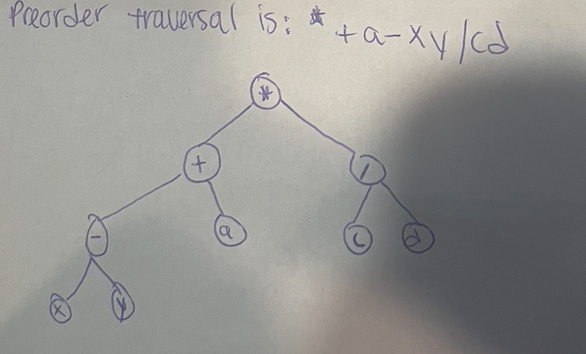 Preorder traversal is: * + a - x y / c d
*
+ /
- a c d
x y